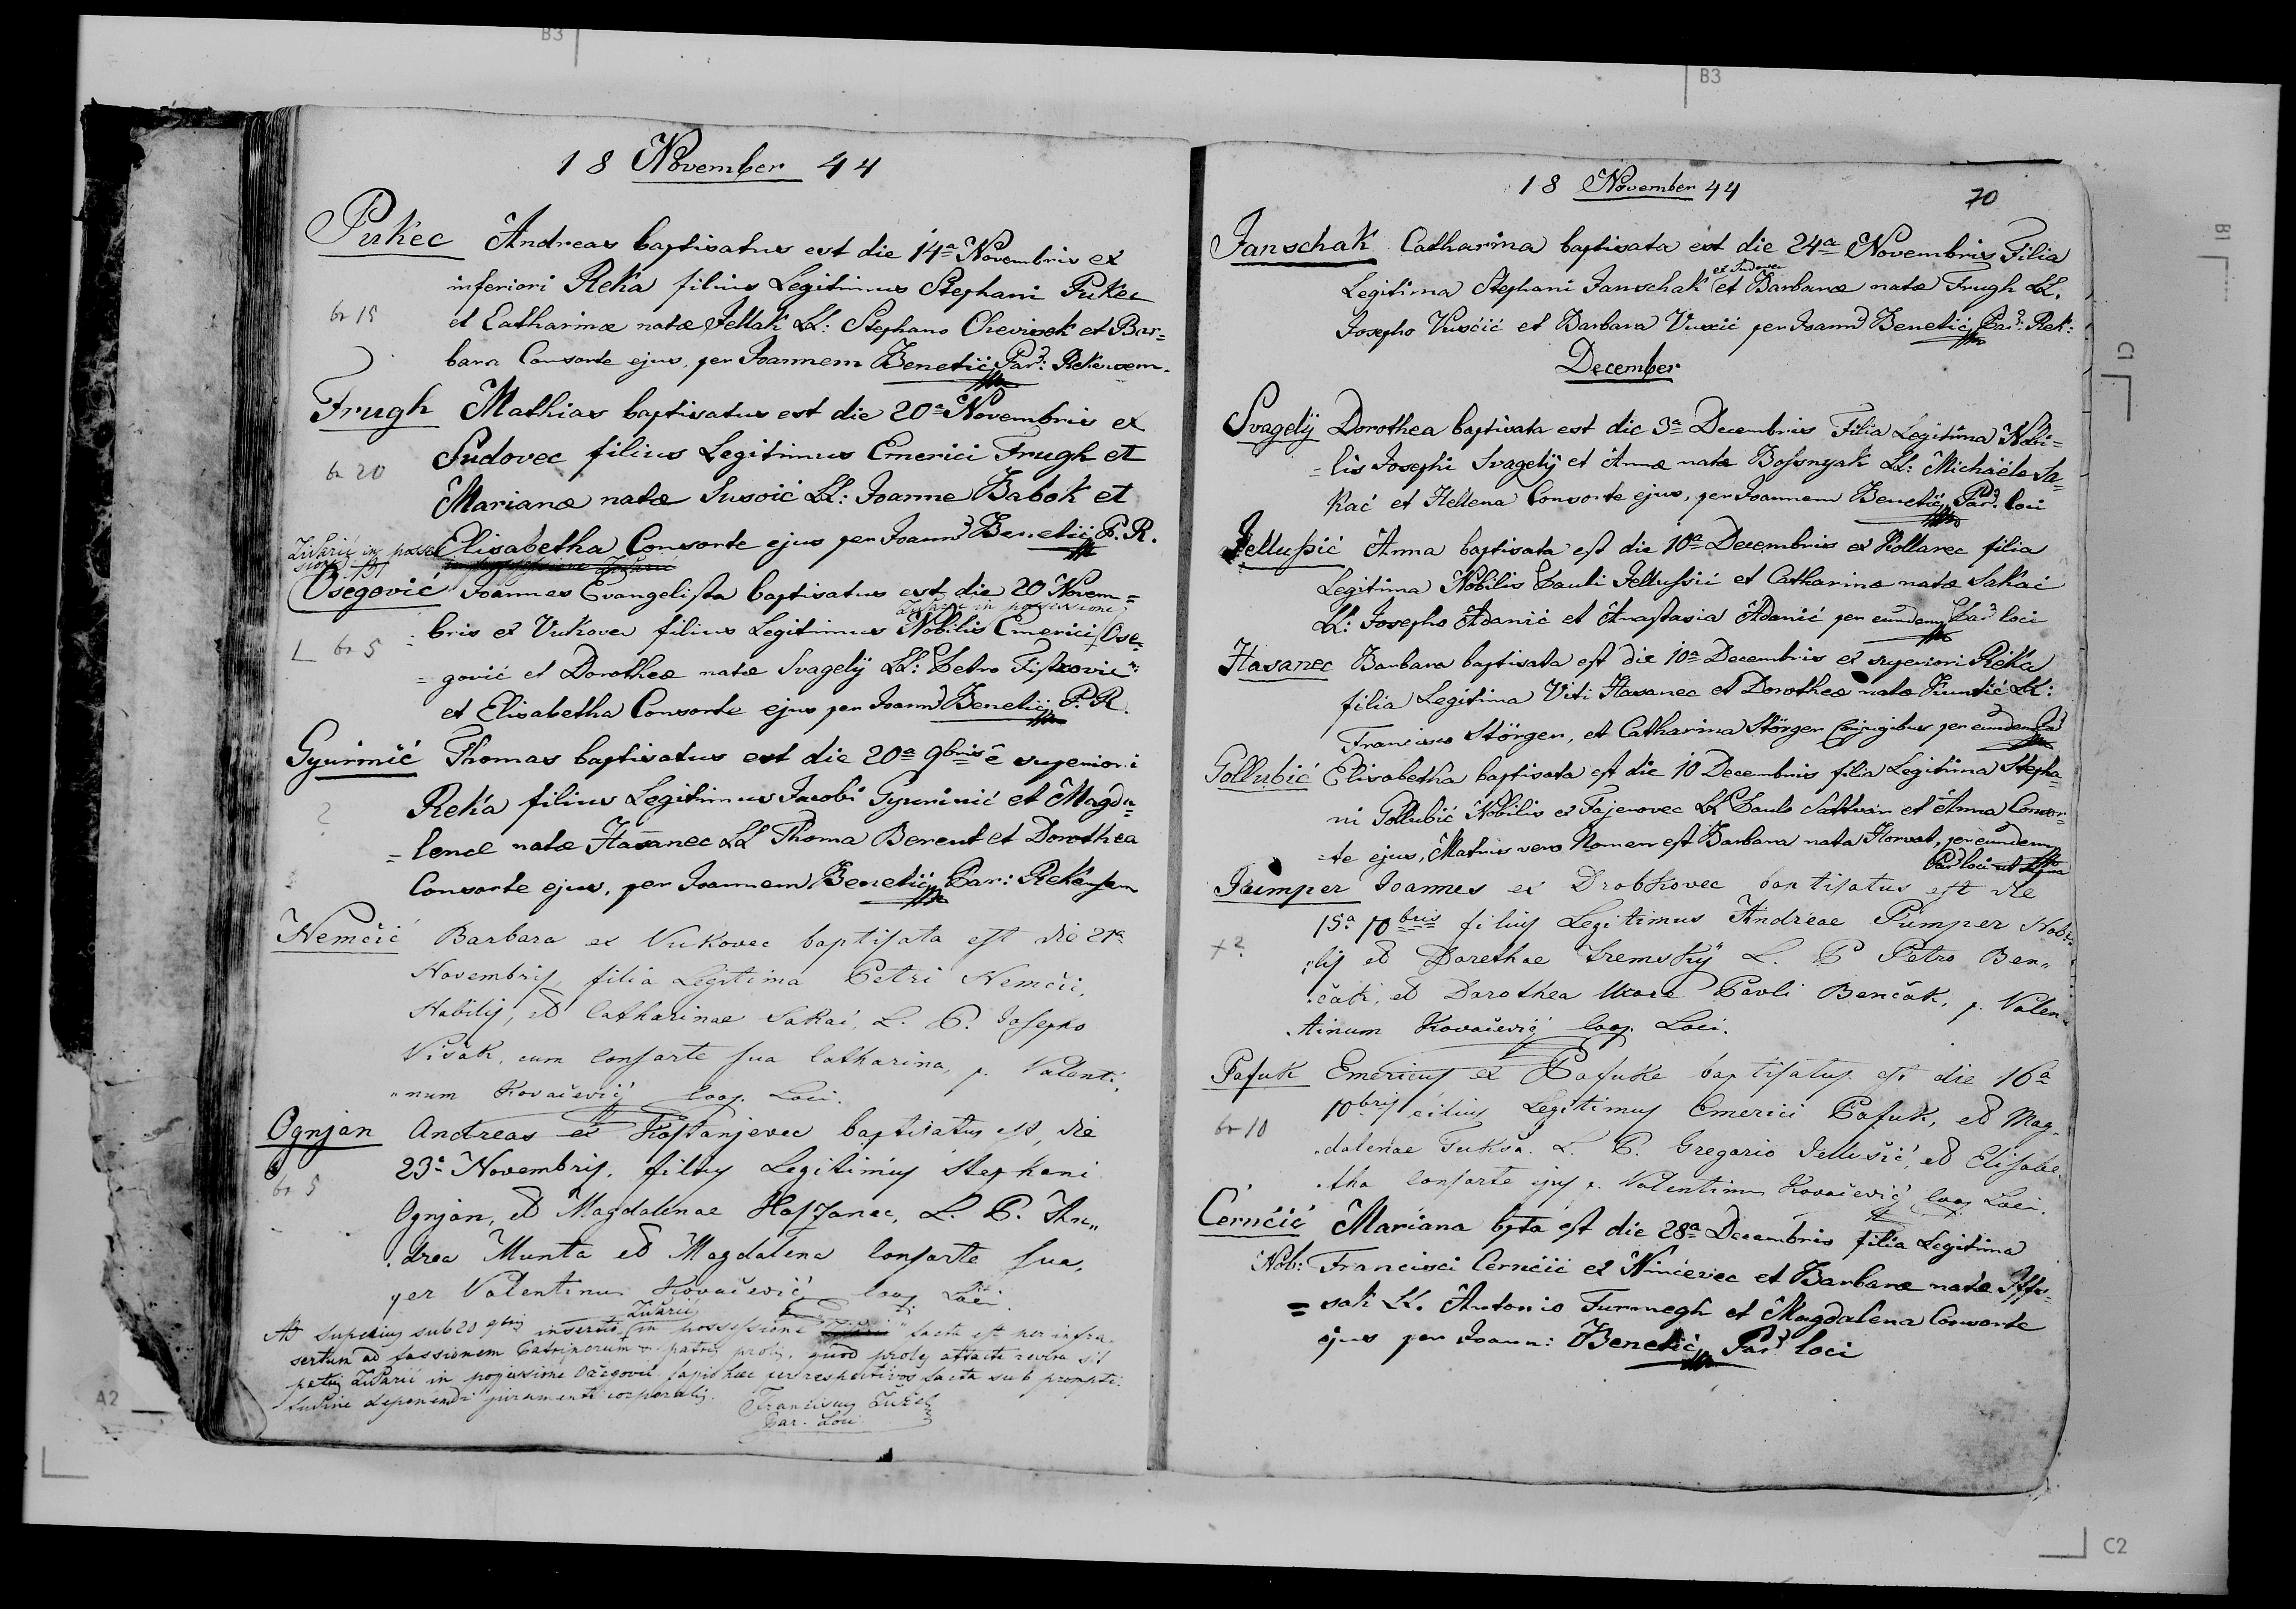 18 November 44
Pukec Andreas baptisatus est die 14a Novembris ex
inferiori Reka filius Legitimus Stephani Pukec
br 15
et Catharinæ natæ Jellak LL: Stephano Chevisek et Bar=
bara Consorte ejus, per Joannem Benetić Par: Rekensem.
Frugh Mathias baptisatus est die 20a Novembris ex
Sudovec filius Legitimus Emerici Frugh et
br 20
Marianæ natæ Susoić LL: Joanne Babok et
Elisabetha Consorte ejus per Joann Benetić P. R.
Žibarić in posses
sione
Osegović Joannes Evangelista baptisatus est die 20 Novem=
in possessione
bris ex Vukovec filius Legitimus Nobilis Emerici Ose=
br 5
=gović et Dorotheæ natæ Svagelÿ LL: Petro
et Elisabetha Consorte ejus per Joann Benetić P. R.
Gyurinić Thomas baptisatus est die 20a 9bris e superiori
Reka filius Legitimus Jacobi Gyurinić et Magda=
?
=lenæ natæ Hasanec LL Thoma Berent et Dorothea
Consorte ejus, per Joannem Benetić Par: Rekensem
Nemčić Barbara ex Vukovec baptisata est die 21a
Novembris, filia Legitima Petri Nemčić,
Nobilis, et Catharinae Sakać, L. P. Josepho
Višak, cum consorte sua Catharina, p. Valenti.
"num Kovačević Coop. Loci.
Ognjan Andreas ex Kostanjevec baptisatus est, die
23a Novembris, filius Legitimus Stephani
br 5
Ognjan, et Magdalenae Hasjanec, L. P. An"
.drea Munta et Magdalena consorte sua,
per Valentinum Kovačević Coop Loci.
Ad superius sub 20 9bris insertus in possessione facta est per infra
sertum ad fassionem Patrinorum patris prolis, quod proles attacta revera sit
in possessione Ožegović
deponendi juramenti corporalis. Franciscus
Par. Loci
18 November 44
70
Janschak Catharina baptisata est die 24a Novembris Filia
ex Sudovec
Legitima Stephani Janschak et Barbaræ natæ Frugh LL.
Josepho Vusčić et Barbara Vusčić per Joann Benetić Par: Rek:
December
Svagelÿ Dorothea baptisata est die 3a Decembris Filia Legitima Nobi=
=lis Josephi Svagelÿ et Annæ natæ Bossnyak LL: Michaële Sa=
kać et Hellena Consorte ejus, per Joannem Benetić Par: loci
Jellussić Anna baptisata est die 10a Decembris ex Kollarec filia
Legitima Nobilis Pauli Jellussić et Catharinæ natæ Sakać
LL: Josepho Adanić et Anastasia Adanić per eundem Par loci
Hasanec Barbara baptisata est die 10a Decembris ex superiori Reka
filia Legitima Viti Hasanec et Dorotheæ natæ Kuntić LL:
Francisco Störger, et Catharina Störger Conjugibus per eundem
Gollubić Elisabetha baptisata est die 10 Decembris filia Legitima Stepha=
ni Gollubić Nobilis ex Fajerovec LL Paulo et Anna Consor=
=te ejus, Matris vero Nomen est Barbara nata Horvat, per eundem
Par loci
Pumper Joannes ex Drobkovec baptisatus est die
15a 10bris filius Legitimus Andreae Pumper Nobi
+?
lis et Dorotheae Sremskÿ L. P Petro Ben"
.čak, et Dorothea Uxore Pavli Benčak, p. Valen"
.tinum Kovačević Coop. Loci.
Pafuk Emericus ex Pafuke baptisatus est die 16a
10bris filius Legitimus Emerici Pafuk, et Mag.
br 10
.dalenae Fuksa. L. P. Gregorio Jellušić, et Elisabe.
.tha consorte ejus p. Valentinum Kovačević Coop Loci.
Černčić Mariana bpta est die 28a Decembris filia Legitima
Nob: Francisci Černčić ex Ninčevec et Barbaræ natæ
=sak LL. Antonio Turnegh et Magdalena Consorte
ejus per Joann: Benetić Par loci